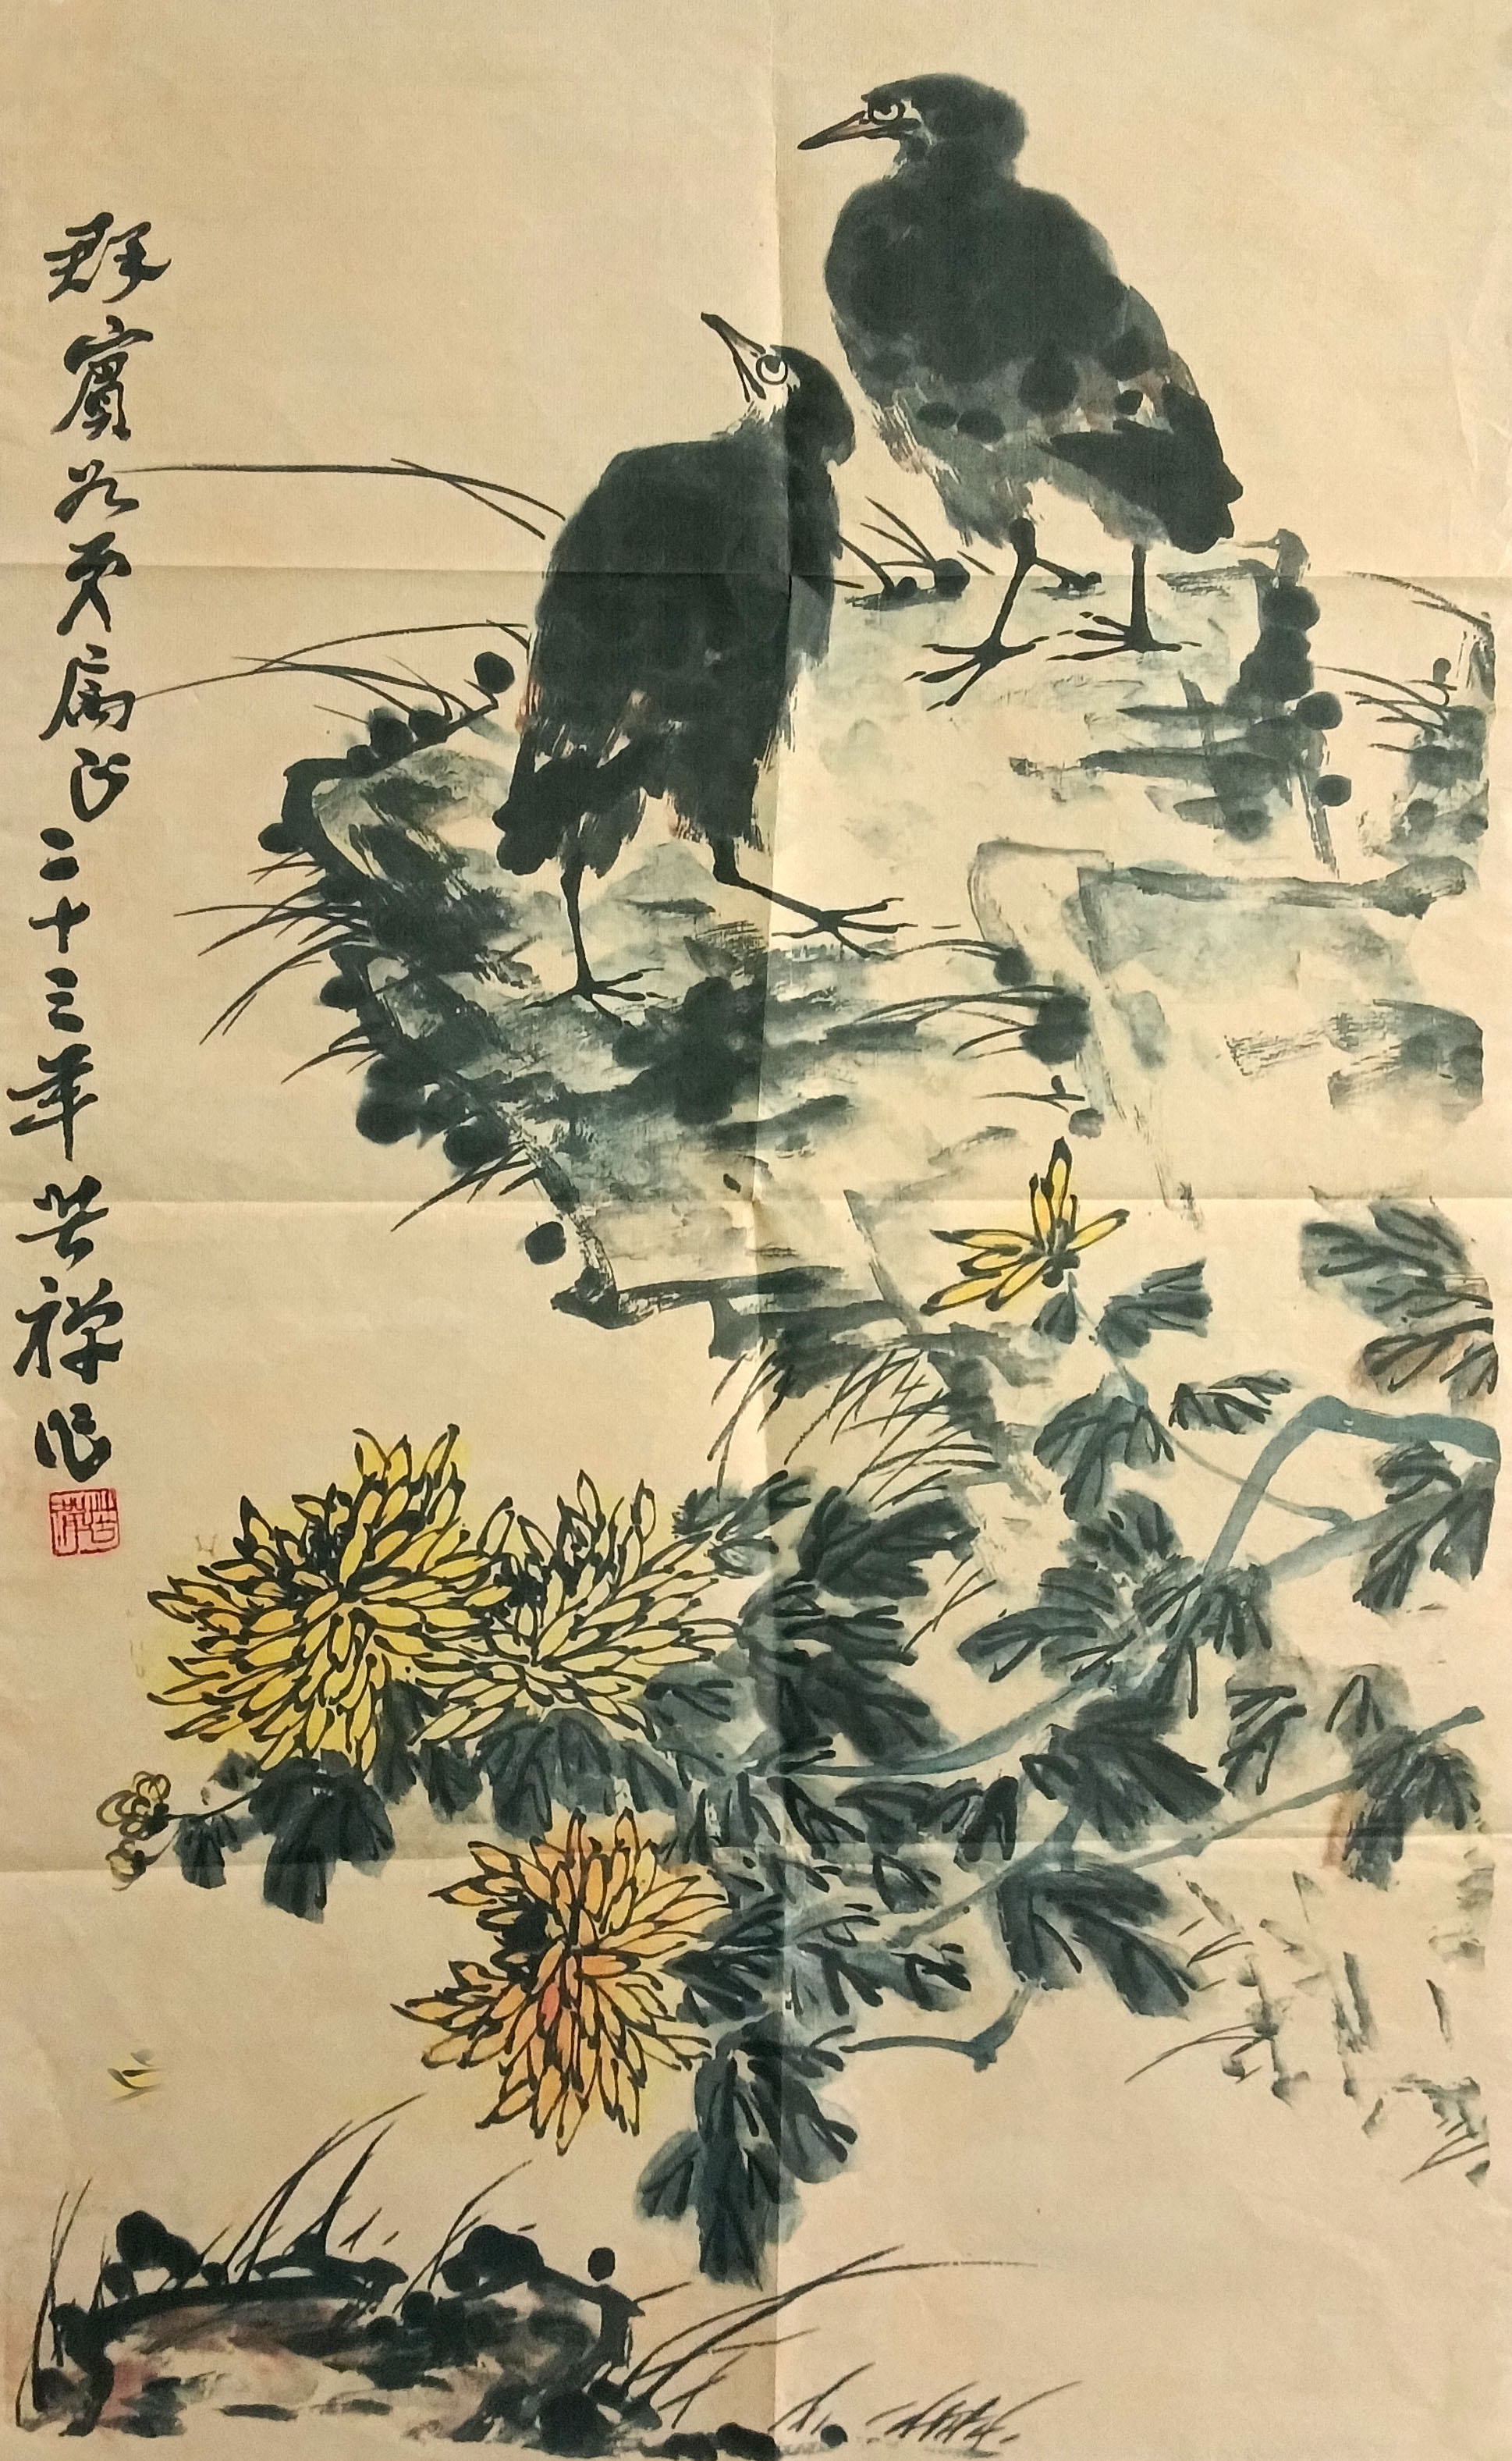 群賓属正二十三年苦禅作
苦禅